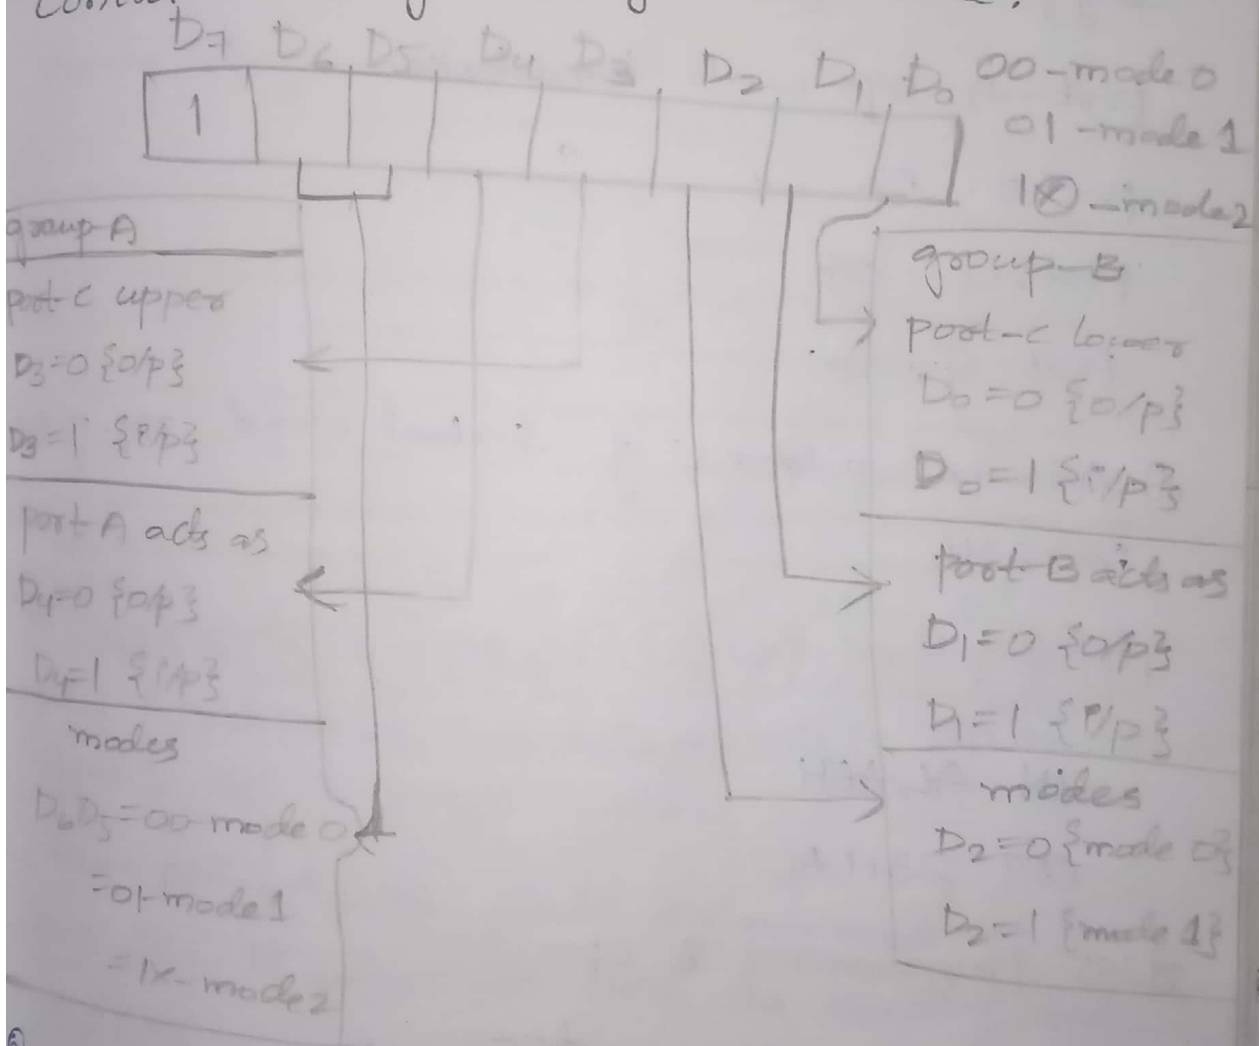 D7 D6 D5 D4 D3 D2 D1 D0
1
00-mode 0
01-mode 1
1X-mode2
group-A
port-C upper
D3=0 {o/p}
D3=1 {i/p}
port-A acts as
D4=0 {o/p}
D4=1 {i/p}
modes
D6D5=00-mode 0
=01-mode 1
=1X-mode2
group-B
port-C lower
D0=0 {o/p}
D0=1 {i/p}
port-B acts as
D1=0 {o/p}
D1=1 {i/p}
modes
D2=0 {mode 0}
D2=1 {mode 1}